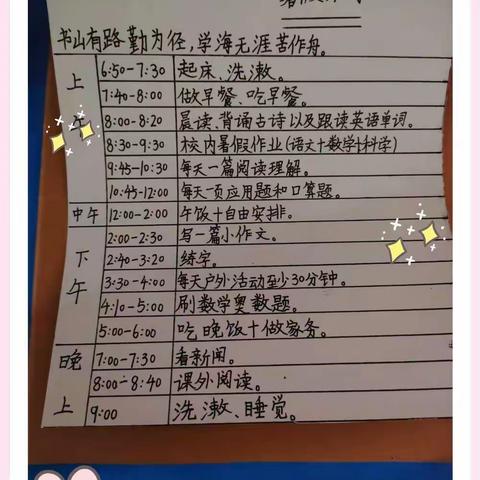 书山有路勤为径,学海无涯苦作舟。
上午
6:50-7:30 起床、洗漱。
7:40-8:00 做早餐、吃早餐。
8:00-8:20 晨读、背诵古诗以及跟读英语单词。
8:30-9:30 校内暑假作业(语文+数学+科学)
9:45-10:30 每天一篇阅读理解。
10:45-12:00 每天一页应用题和口算题。
中午 12:00-2:00 午饭+自由安排。
下午
2:00-2:30 写一篇小作文。
2:40-3:20 练字。
3:30-4:00 每天户外活动至少30分钟。
4:10-5:00 刷数学奥数题。
5:00-6:00 吃晚饭+做家务。
晚上
7:00-7:30 看新闻。
8:00-8:40 课外阅读。
9:00 洗漱、睡觉。